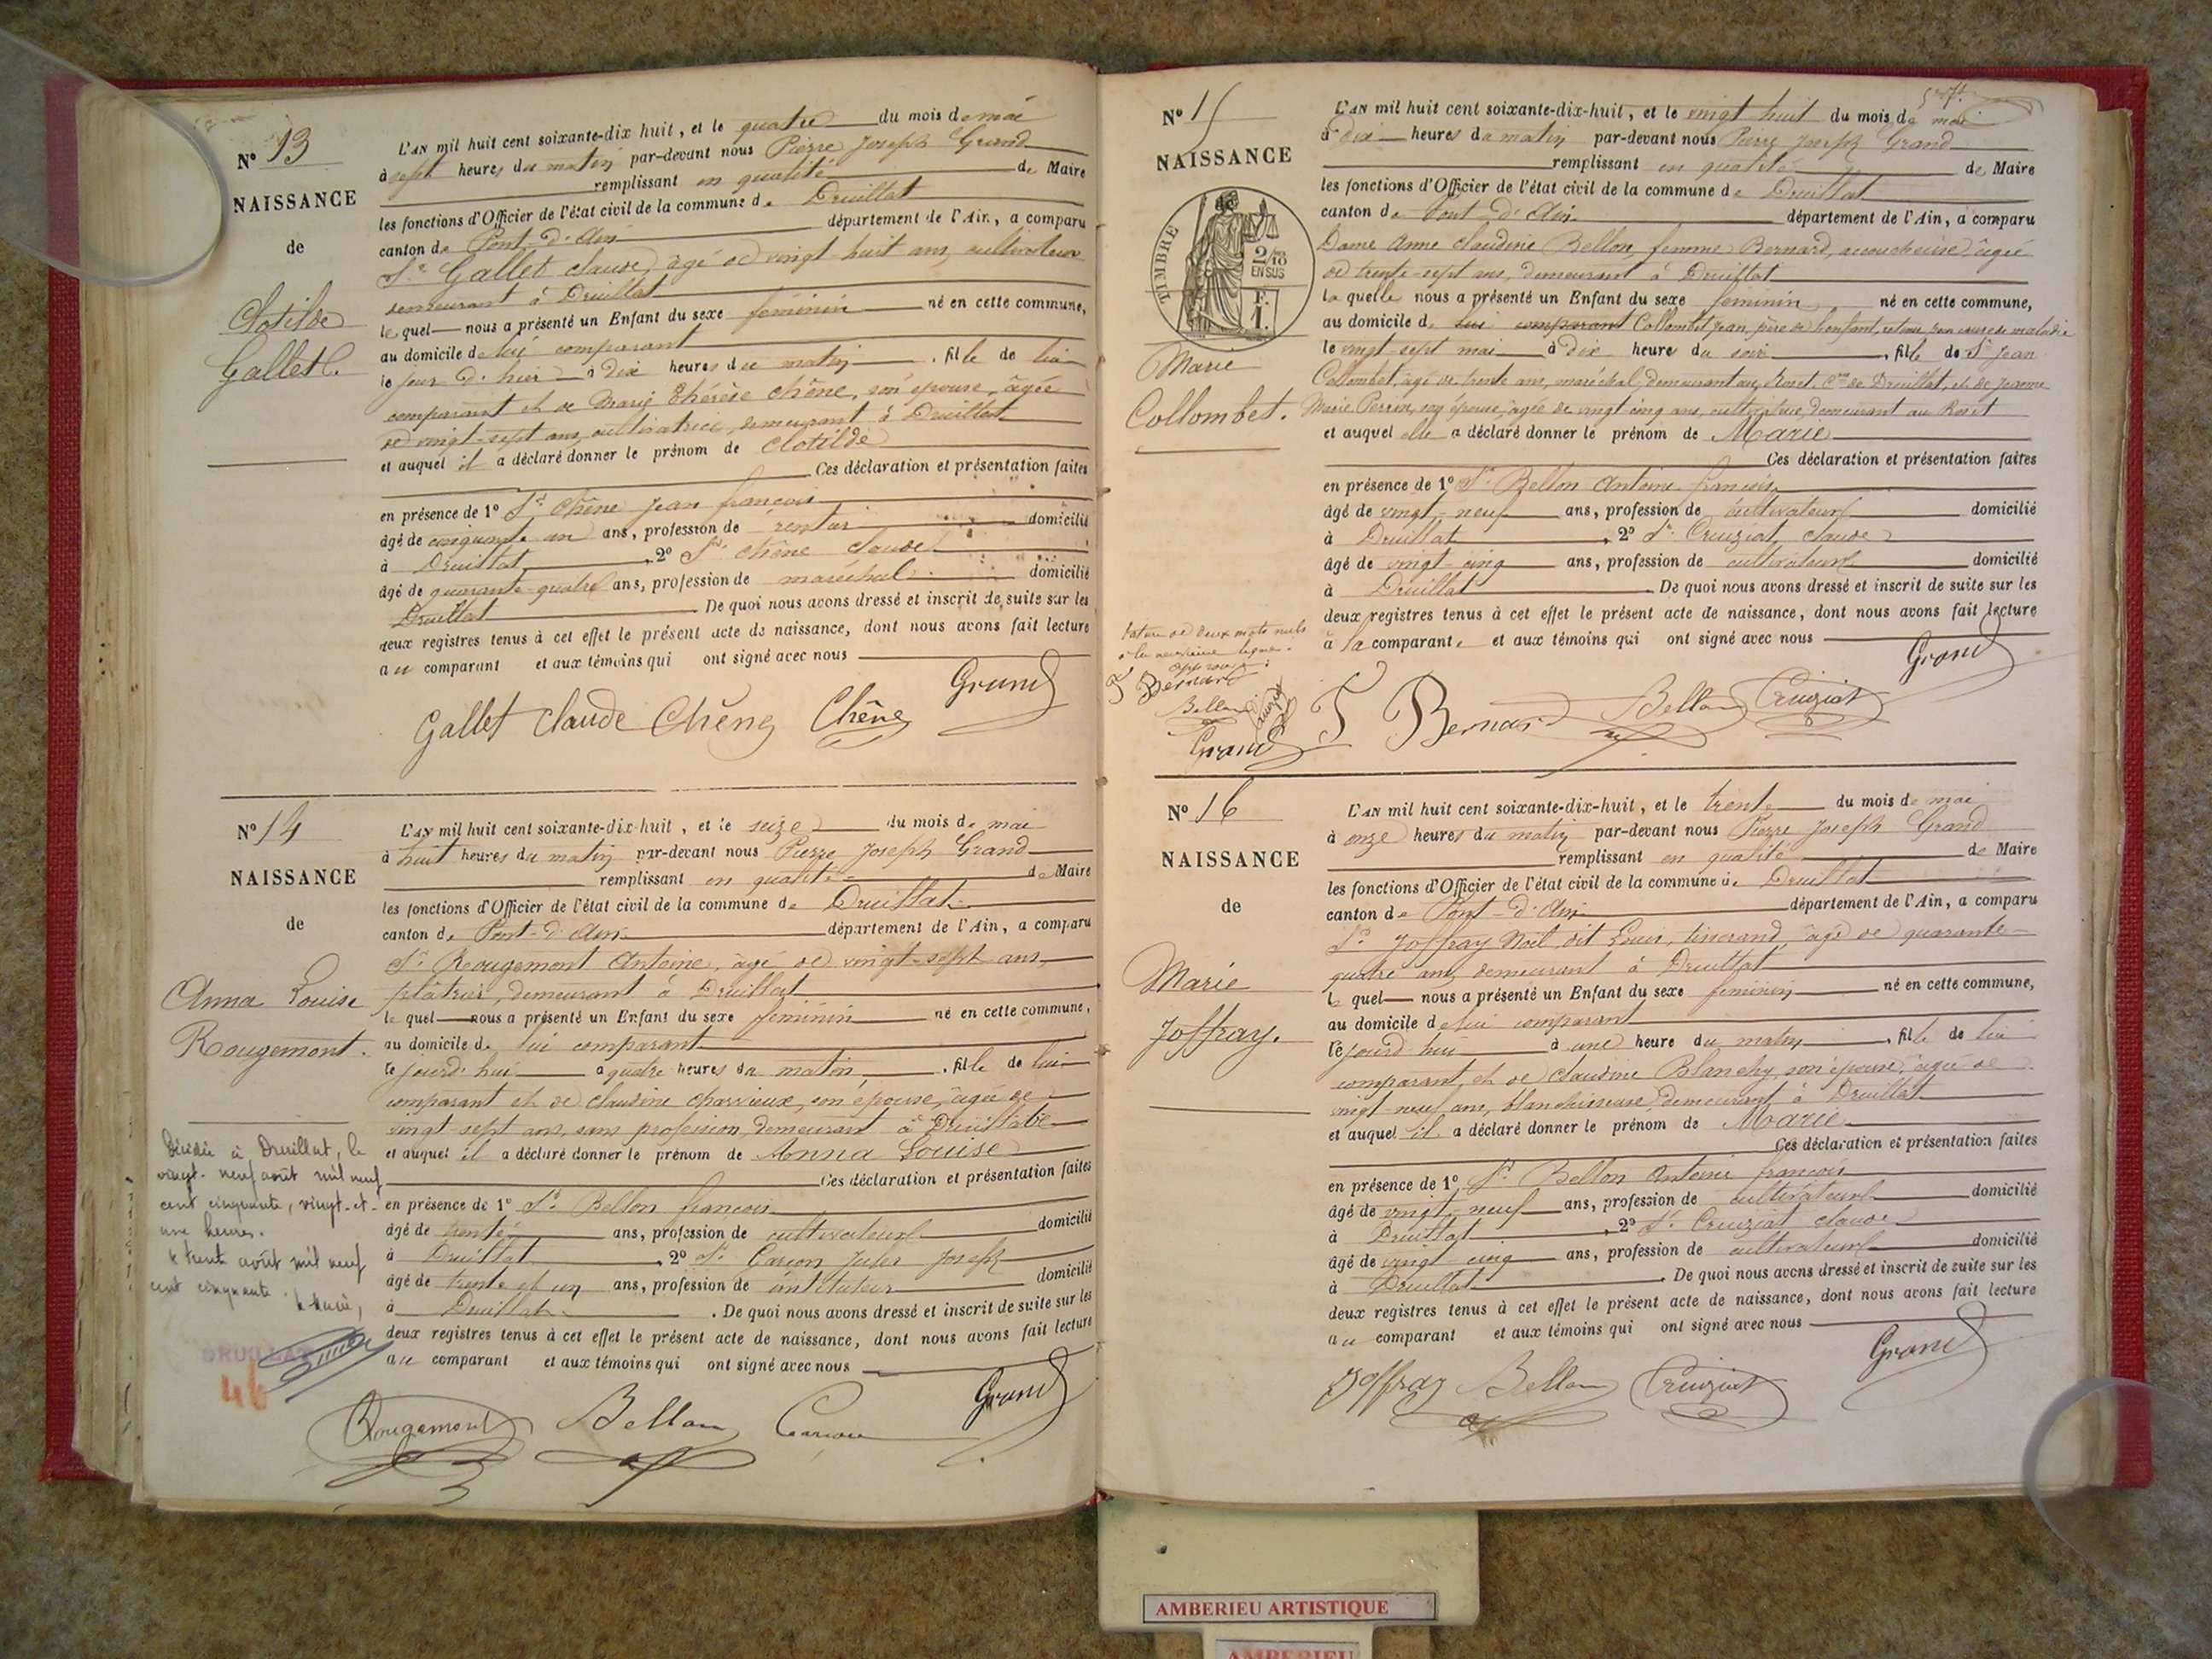 N° 13
NAISSANCE
de
Clotilde
Gallet.
L'AN mil huit cent soixante-dix huit, et le quatre du mois de mai
à sept heures du matin par-devant nous Pierre Joseph Grand
remplissant en qualité de Maire
les fonctions d'Officier de l'état civil de la commune de Druillat
canton de Pont-d'Ain département de l'Ain, a comparu
Sr Gallet claude, âgé de vingt huit ans, cultivateur
demeurant à Druillat
lequel nous a présenté un Enfant du sexe féminin né en cette commune,
au domicile de lui comparant
le jour d'hier à dix heures du matin, fille de lui
comparant et de Marie Thérèse Chêne, son épouse, âgée
de vingt-sept ans, cultivatrice, demeurant à Druillat
et auquel il a déclaré donner le prénom de Clotilde
Ces déclaration et présentation faites
en présence de 1° Sr Chêne Jean françois
âgé de cinquante un ans, profession de rentier domicilié
à Druillat, 2° Sr Chêne claude
âgé de quarante-quatre ans, profession de maréchal domicilié
Druillat. De quoi nous avons dressé et inscrit de suite sur les
deux registres tenus à cet effet le présent acte de naissance, dont nous avons fait lecture
au comparant et aux témoins qui ont signé avec nous
Grand
Gallet Claude Chêne Chêne
N° 14
NAISSANCE
de
Anna Louise
Rougemont.
L'AN mil huit cent soixante-dix-huit, et le seize du mois de mai
à huit heures du matin par-devant nous Pierre Joseph Grand
remplissant en qualité de Maire
les fonctions d'Officier de l'état civil de la commune de Druillat
canton de Pont-d'Ain département de l'Ain, a comparu
Sr Rougemont Antoine, âgé de vingt-sept ans
plâtrier, demeurant à Druillat
lequel nous a présenté un Enfant du sexe féminin né en cette commune,
au domicile de lui comparant
le jourd'hui à quatre heures du matin, fille de lui
comparant et de claudine charvieux, son épouse, âgée de
vingt-sept ans, sans profession, demeurant à Druillat
et auquel il a déclaré donner le prénom de Anna Louise
Ces déclaration et présentation faites
en présence de 1° Sr Bellon françois
âgé de trente ans, profession de cultivateur domicilié
à Druillat, 2° Sr Carion Jules Joseph
âgé de trente et un ans, profession de instituteur domicilié
à Druillat. De quoi nous avons dressé et inscrit de suite sur les
deux registres tenus à cet effet le présent acte de naissance, dont nous avons fait lecture
au comparant et aux témoins qui ont signé avec nous
Grand
Rougemont Bellon Carion
Décédée à Druillat, le
vingt-neuf août mil neuf
cent cinquante, vingt-et-
une heures.
le trente août mil neuf
cent cinquante. le Maire,
DRUILLAT
46
N° 15
NAISSANCE
TIMBRE
2/10 EN SUS
F. 1.
Marie
Collombet.
L'AN mil huit cent soixante-dix-huit, et le vingt huit du mois de mai
à dix heures du matin par-devant nous Pierre Joseph Grand
remplissant en qualité de Maire
les fonctions d'Officier de l'état civil de la commune de Druillat
canton de Pont-d'Ain département de l'Ain, a comparu
Dame Anne claudine Bellon, femme Bernard, accoucheuse, âgée
de trente-sept ans, demeurant à Druillat
laquelle nous a présenté un Enfant du sexe féminin né en cette commune,
au domicile de lui comparant Collombet Jean, père de l'enfant, retenu pour cause de maladie
le vingt-sept mai à dix heure du soir, fille de Sr Jean
Collombet, âgé de trente ans, maréchal, demeurant au Roset, Cne de Druillat, et de Jeanne
Marie Perrin, son épouse, âgée de vingt cinq ans, cultivatrice, demeurant au Roset
et auquel elle a déclaré donner le prénom de Marie
Ces déclaration et présentation faites
en présence de 1° Sr Bellon Antoine françois
âgé de vingt-neuf ans, profession de cultivateur domicilié
à Druillat, 2° Sr Cruiziat, claude
âgé de vingt-cinq ans, profession de cultivateur domicilié
à Druillat. De quoi nous avons dressé et inscrit de suite sur les
deux registres tenus à cet effet le présent acte de naissance, dont nous avons fait lecture
à la comparante et aux témoins qui ont signé avec nous
Grand
de deux mots nuls
à la neuvième ligne.
approuvé:
F Bernard
Bellon Cruiziat
Grand
F Bernard Bellon Cruiziat
N° 16
NAISSANCE
de
Marie
Joffray.
L'AN mil huit cent soixante-dix-huit, et le trente du mois de mai
à onze heures du matin par-devant nous Pierre Joseph Grand
remplissant en qualité de Maire
les fonctions d'Officier de l'état civil de la commune de Druillat
canton de Pont-d'Ain département de l'Ain, a comparu
Sr Joffray Noël dit Louis, tisserand, âgé de quarante-
quatre ans, demeurant à Druillat
lequel nous a présenté un Enfant du sexe féminin né en cette commune,
au domicile de lui comparant
le jourd'hui à une heure du matin, fille de lui
comparant, et de claudine Blanchy, son épouse, âgée de
vingt-neuf ans, blanchisseuse, demeurant à Druillat
et auquel il a déclaré donner le prénom de Marie
Ces déclaration et présentation faites
en présence de 1° Sr Bellon Antoine françois
âgé de vingt-neuf ans, profession de cultivateur domicilié
à Druillat, 2° Sr Cruiziat claude
âgé de vingt-cinq ans, profession de cultivateur domicilié
à Druillat. De quoi nous avons dressé et inscrit de suite sur les
deux registres tenus à cet effet le présent acte de naissance, dont nous avons fait lecture
au comparant et aux témoins qui ont signé avec nous
Grand
Joffray Bellon Cruiziat
AMBERIEU ARTISTIQUE
AMBERIEU